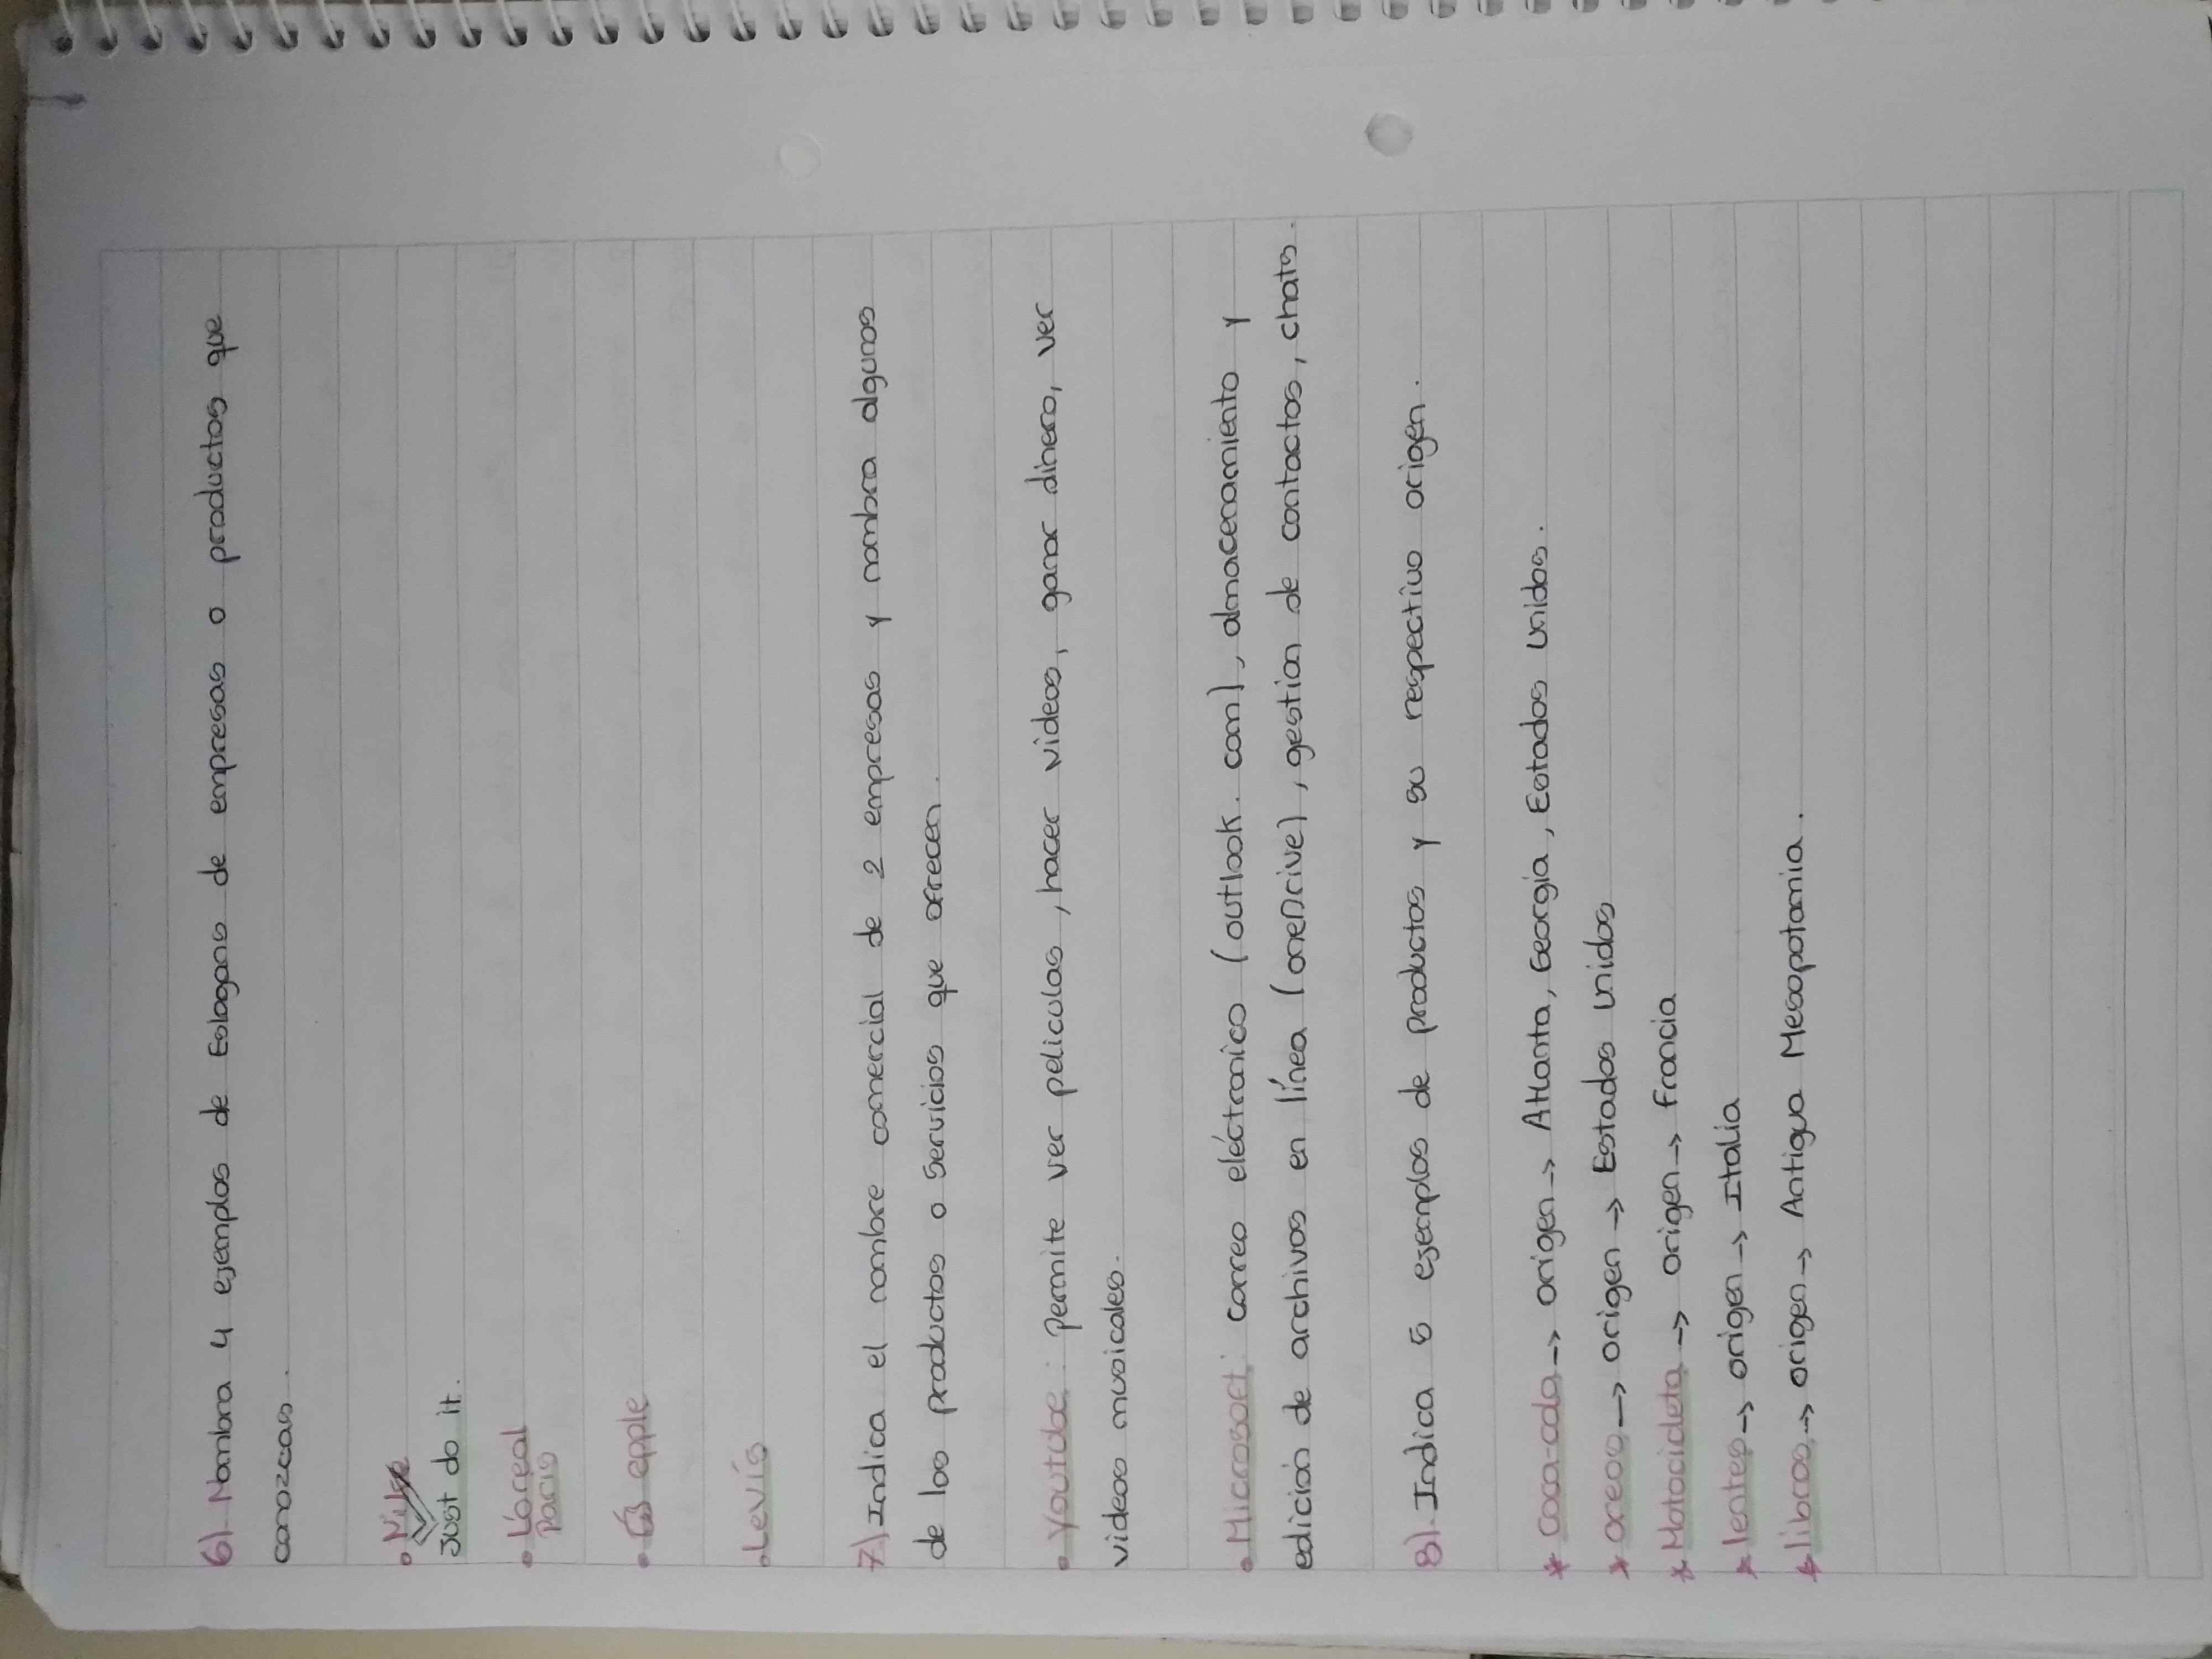 6). Nombra 4 ejemplos de Eslogans de empresas o productos que
conozcas.
• Nike
Just do it.
• L'oreal
Paris
• epple
• Levís
7) Indica el nombre comercial de 2 empresas y nombra algunos
de los productos o servicios que ofrecen.
• Youtube: Permite ver peliculas, hacer videos, ganar dinero, ver
videos musicales.
• Microsoft: correo eléctronico (outlook.com), almacenamiento y
edición de archivos en línea (oneDrive), gestion de contactos, chats.
8). Indica 5 ejemplos de productos y su respectivo origen.
* Coca-cola → origen → Atlanta, Georgia, Estados Unidos.
* oreos → origen → Estados Unidos
* Motocicleta → origen → Francia
* lentes → origen → Italia
* libros → origen → Antigua Mesopotamia.